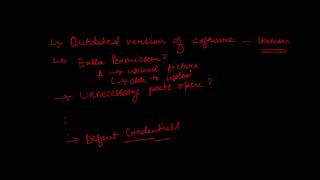 ↳ Outdated version of software — Version
↳ Extra Permission?
A → upload picture
↳ able to upload
→ Unnecessary ports open?
→ Default Credentials